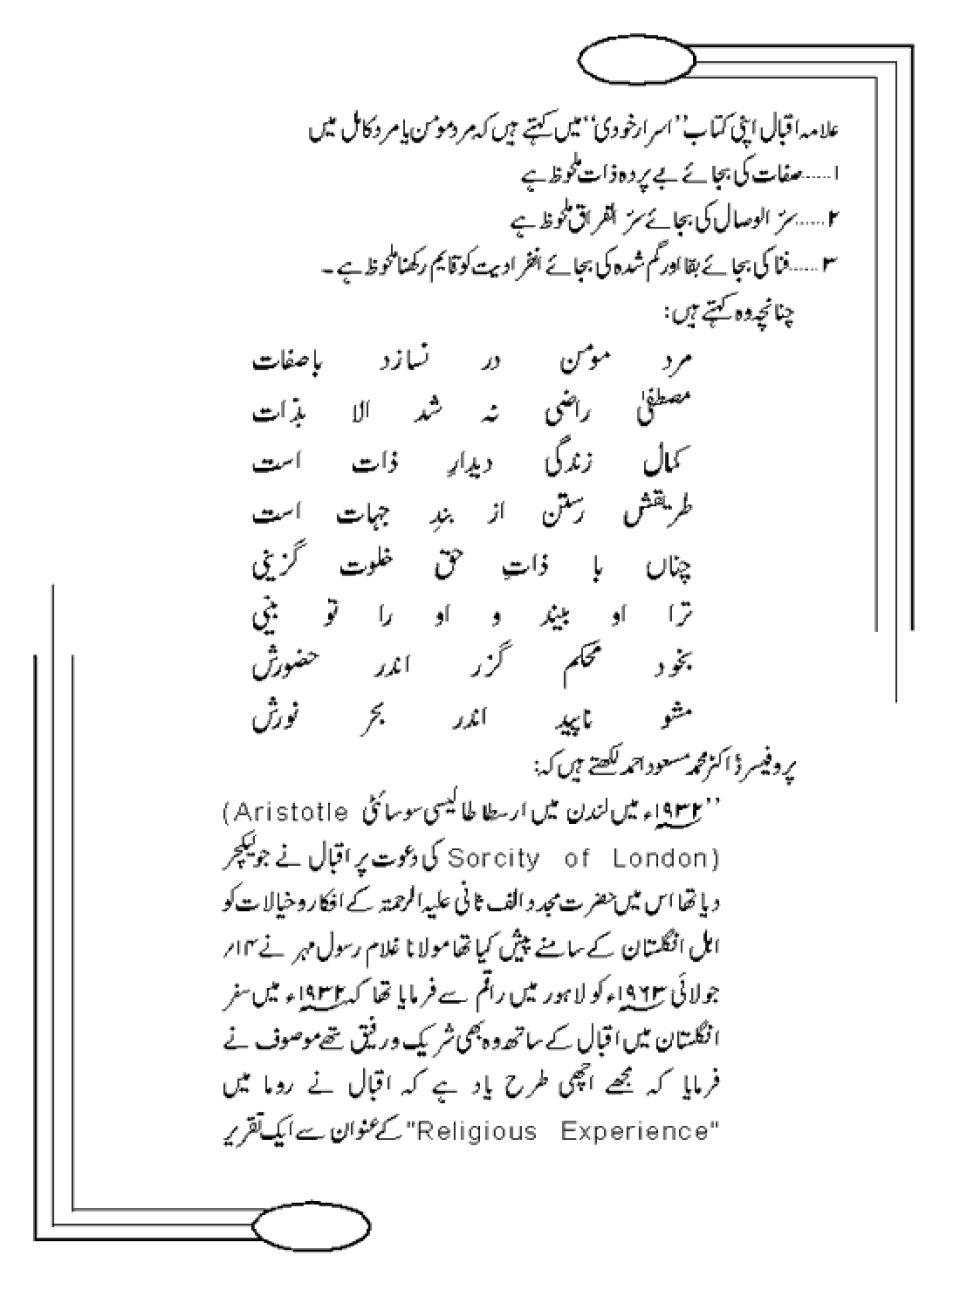 علامہ اقبال اپنی کتاب ’’اسرار خودی‘‘ میں کہتے ہیں کہ مرد مومن یا مرد کامل میں
۱......صفات کی بجائے بے پردہ ذات ملحوظ ہے
۲......سرّ الوصال کی بجائے سرّ الفراق ملحوظ ہے
۳......فنا کی بجائے بقا اور گم شدہ کی بجائے انفرادیت کو قایم رکھنا ملحوظ ہے۔
چنانچہ وہ کہتے ہیں:
مرد مومن در نسازد باصفات
مصطفیٰ راضی نہ شد الا بذات
کمال زندگی دیدارِ ذات است
طریقش رستن از بندِ جہات است
چناں با ذاتِ حق خلوت گزینی
ترا او بیند و او را تو بینی
بخود محکم گزر اندر حضورش
مشو ناپید اندر بحر نورش
پروفیسر ڈاکٹر محمد مسعود احمد لکھتے ہیں کہ:
’’۱۹۳۲ء میں لندن میں ارسطا طالیسی سوسائٹی (Aristotle
Sorcity of London) کی دعوت پر اقبال نے جو لیکچر
دیا تھا اس میں حضرت مجدد الف ثانی علیہ الرحمتہ کے افکار و خیالات کو
اہل انگلستان کے سامنے پیش کیا تھا مولانا غلام رسول مہر نے ۱۴/
جولائی ۱۹۶۳ء کو لاہور میں راقم سے فرمایا تھا کہ ۱۹۳۲ء میں سفر
انگلستان میں اقبال کے ساتھ وہ بھی شریک و رفیق تھے موصوف نے
فرمایا کہ مجھے اچھی طرح یاد ہے کہ اقبال نے روما میں
"Religious Experience" کے عنوان سے ایک تقریر